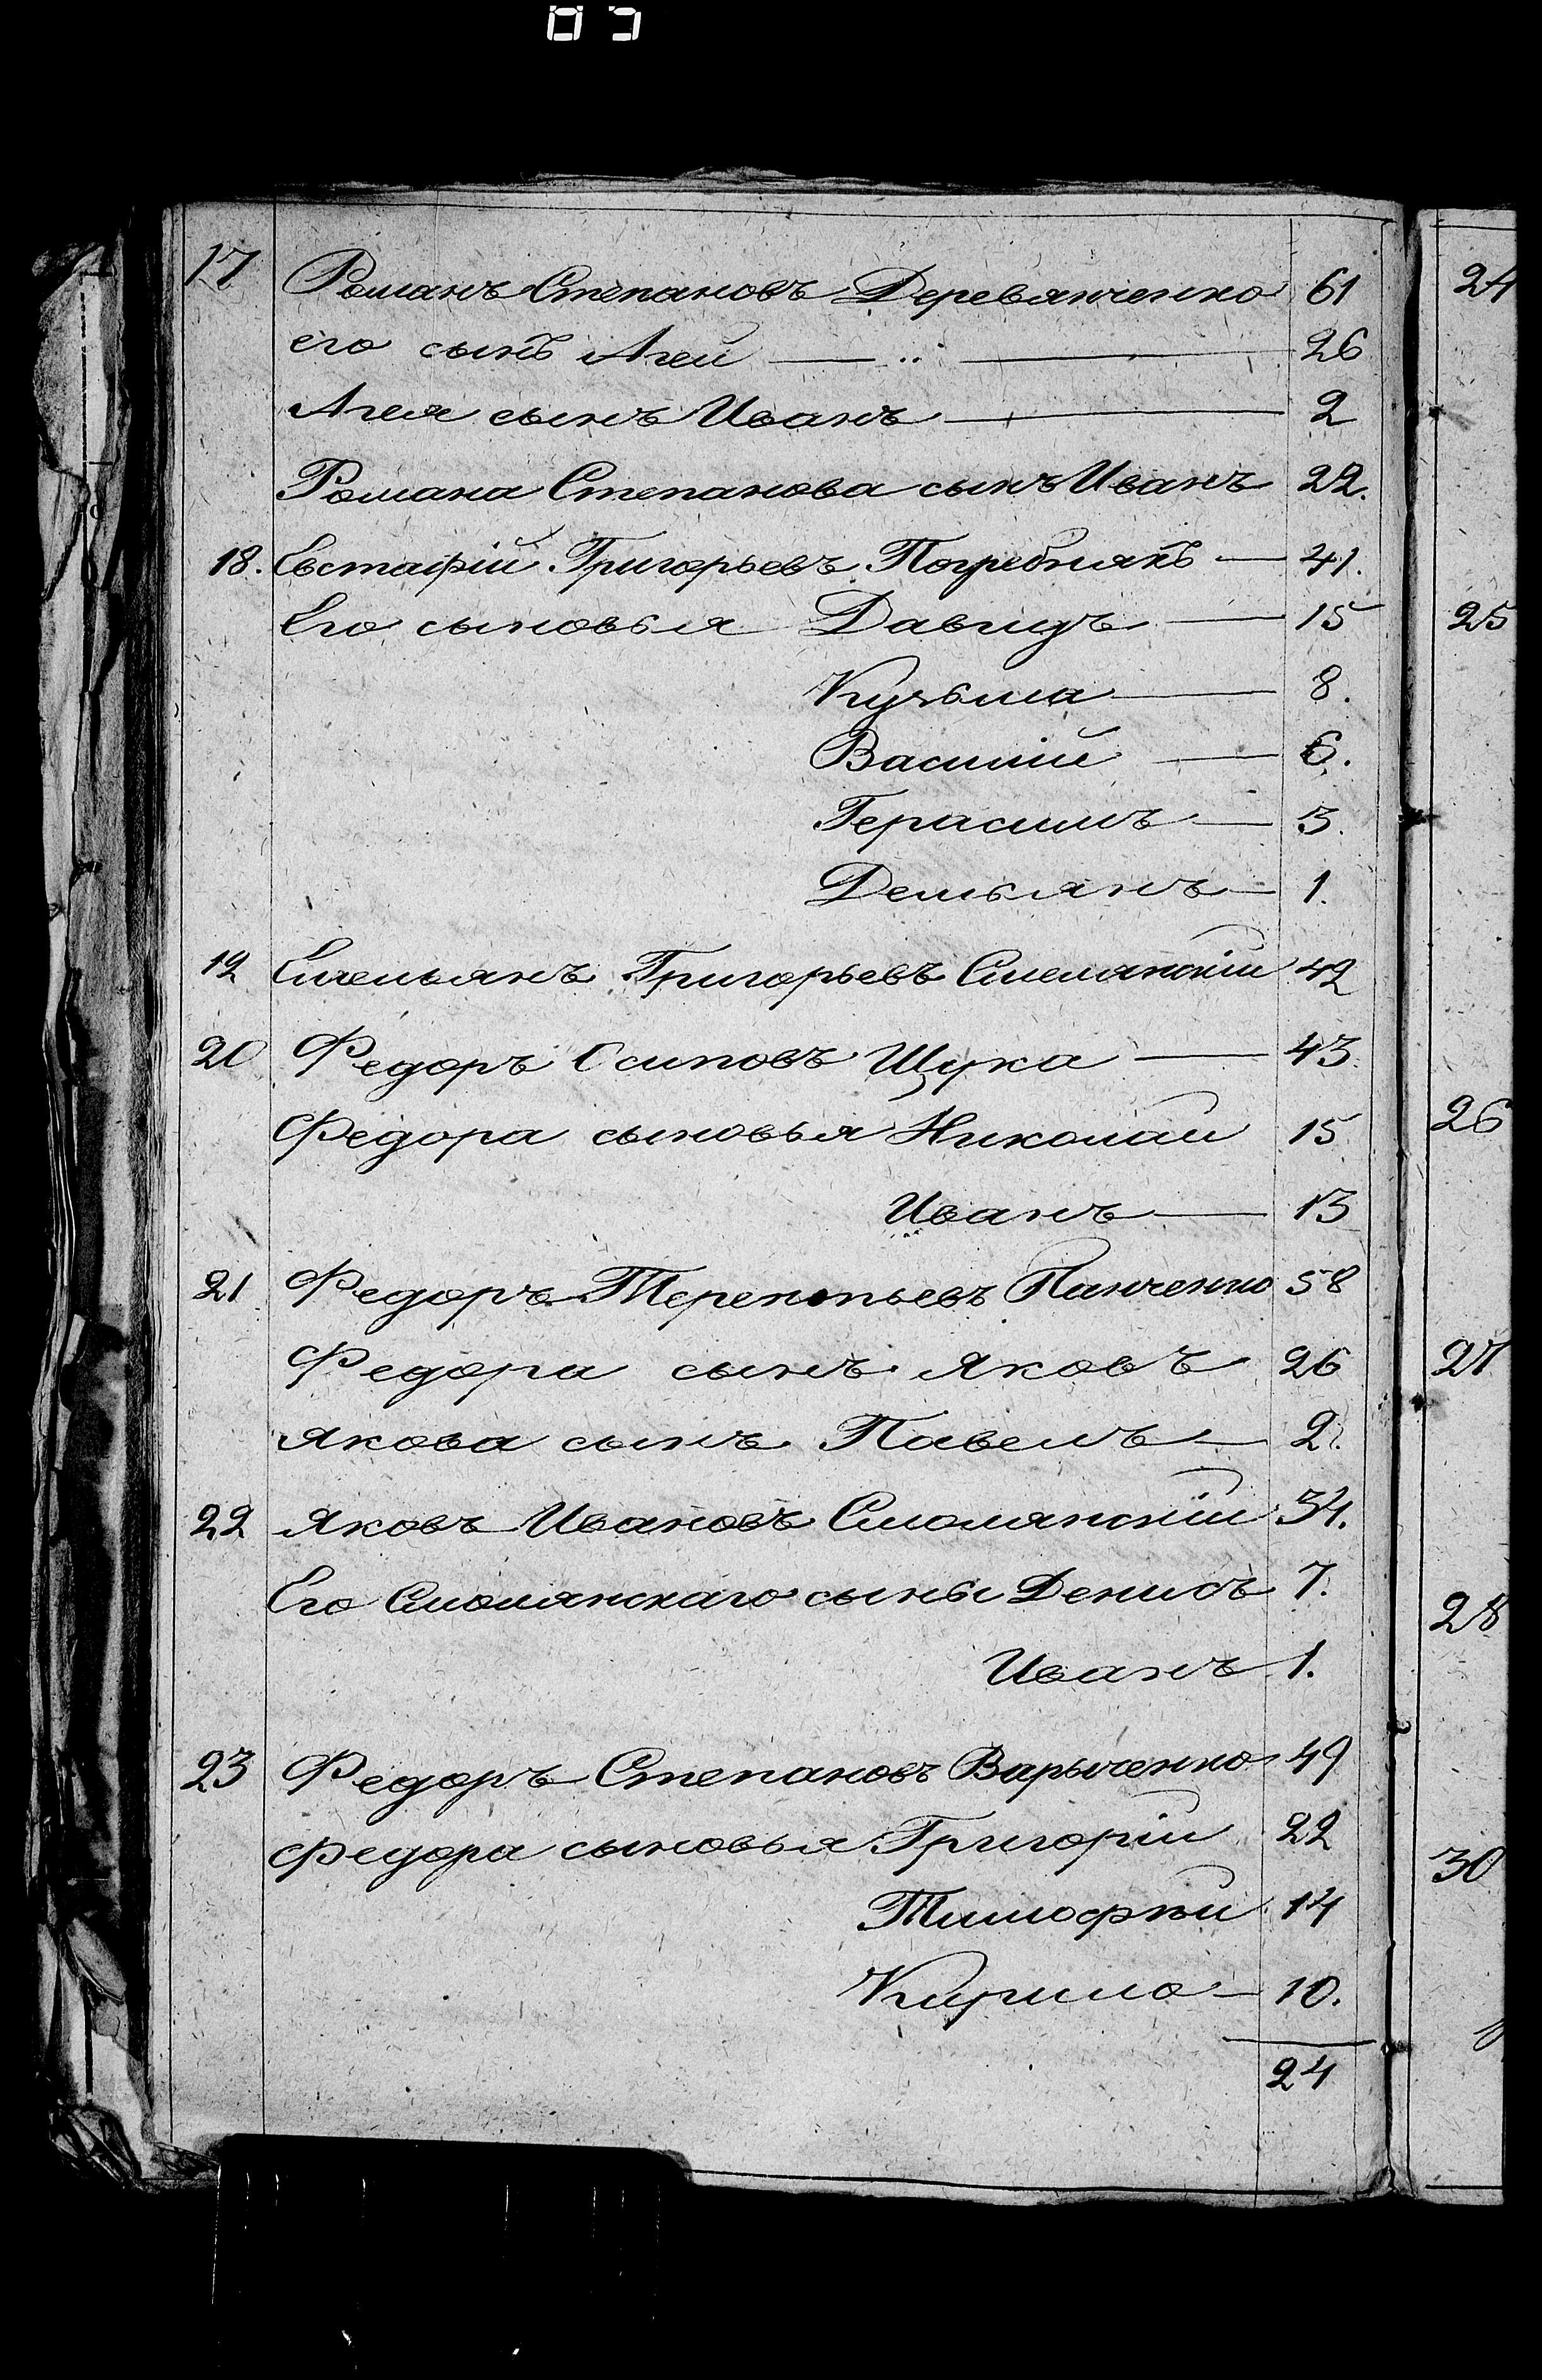 17 Романъ Степановъ Деревянченко 61
его сынъ Агей — „ — 26
Агея сынъ Иванъ — 2
Романа Степанова сынъ Иванъ 22.
18. Евстафій Григорьевъ Погребнякъ — 41.
Его сыновья Давидъ — 15
Кузьма — 8.
Василій — 6.
Герасимъ — 3.
Демьянъ — 1.
19 Емельянъ Григорьевъ Смелянскій 42
20 Федоръ Осиповъ Щука — 43.
Федора сыновья Николай 15
Иванъ — 13
21 Федоръ Терентьевъ Панченко 58
Федора сынъ Яковъ 26
Якова сынъ Павелъ — 2.
22 Яковъ Ивановъ Смолянскій 34.
Его Смолянскаго сыны Денисъ 7.
Иванъ 1.
23 Федоръ Степановъ Варыченко 49
Федора сыновья Григорій 22
Тимофѣй 14
Кирило — 10.
24
24
25
26
27
28
30